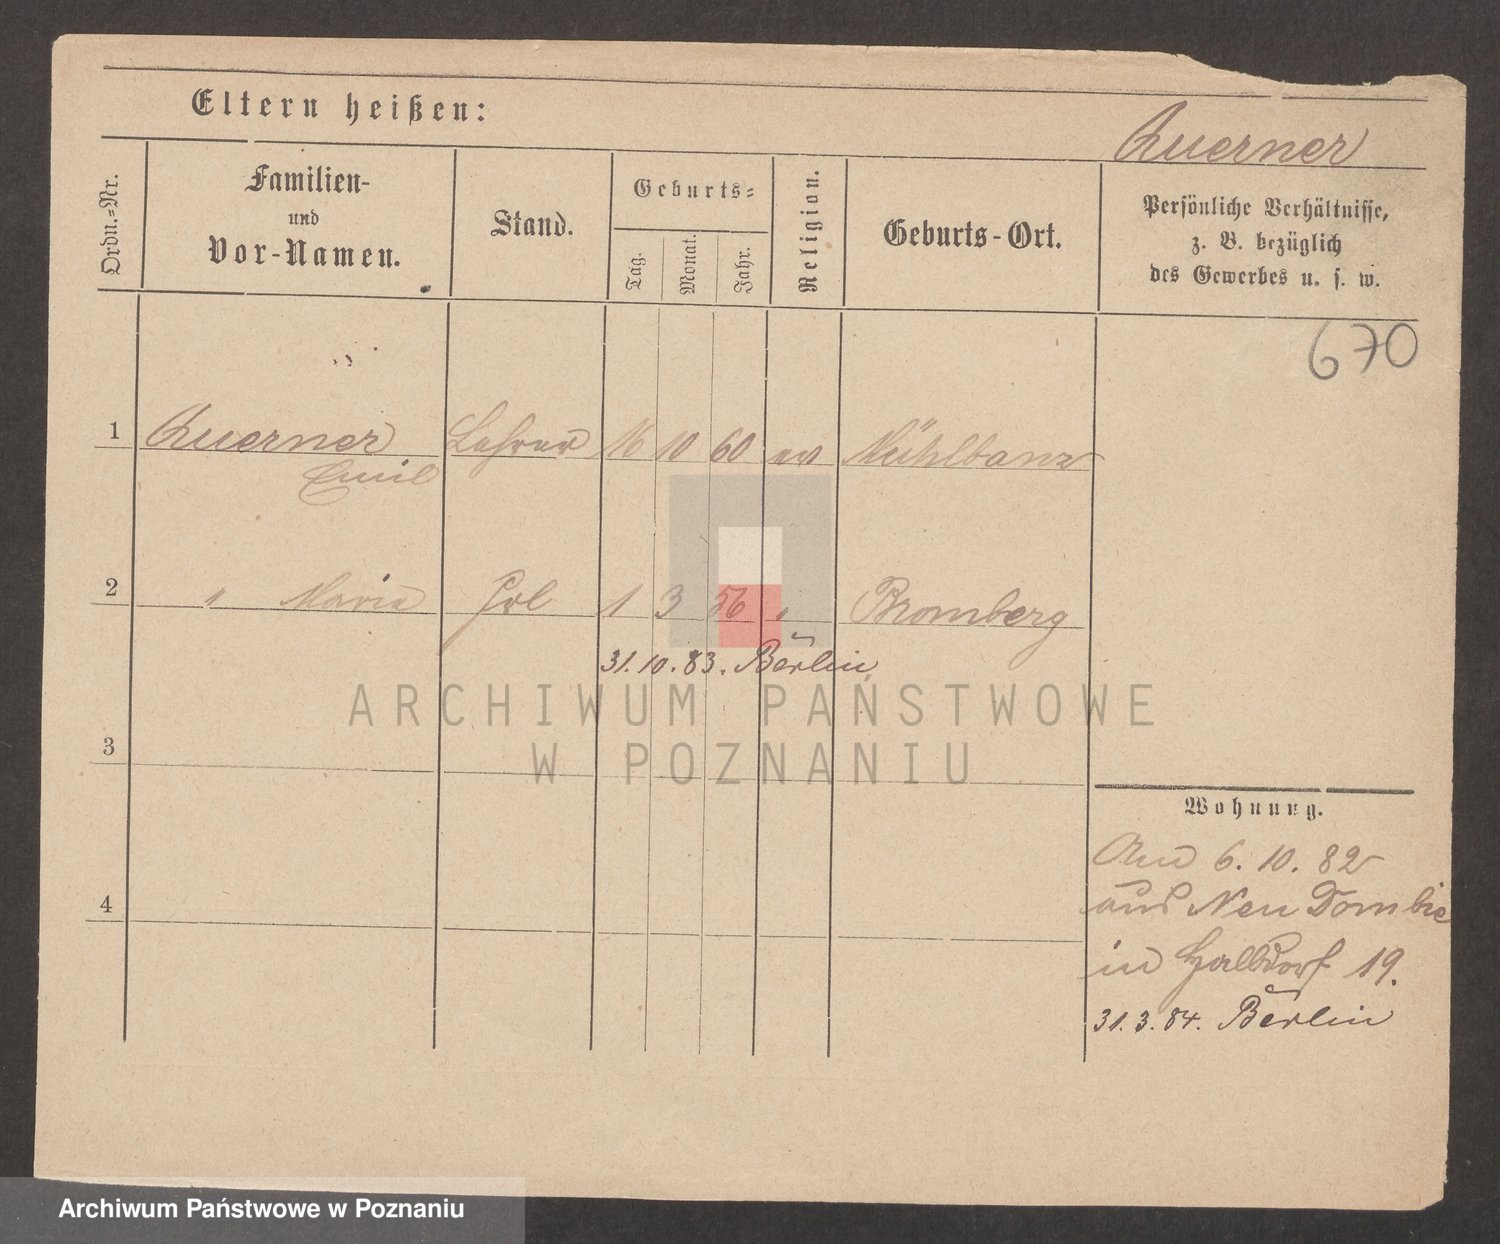 Eltern heißen:
Querner
Ordn.=Nr.
Familien-
und
Vor-Namen.
Stand.
Geburts=
Tag.
Monat.
Jahr.
Religion.
Geburts-Ort.
Persönliche Verhältnisse,
z. B. bezüglich
des Gewerbes u. s. w.
670
1 Querner Lehrer 16 10 60 ev Mühlbanz
Emil
2 " Maria Frl 1 3 56 " Bromberg
31. 10. 83. Berlin,
ARCHIWUM PAŃSTWOWE
W POZNANIU
3
Wohnung.
6. 10. 82
4
aus Neu Dombie
in Halbdorf 19.
31. 3. 84. Berlin
Archiwum Państwowe w Poznaniu